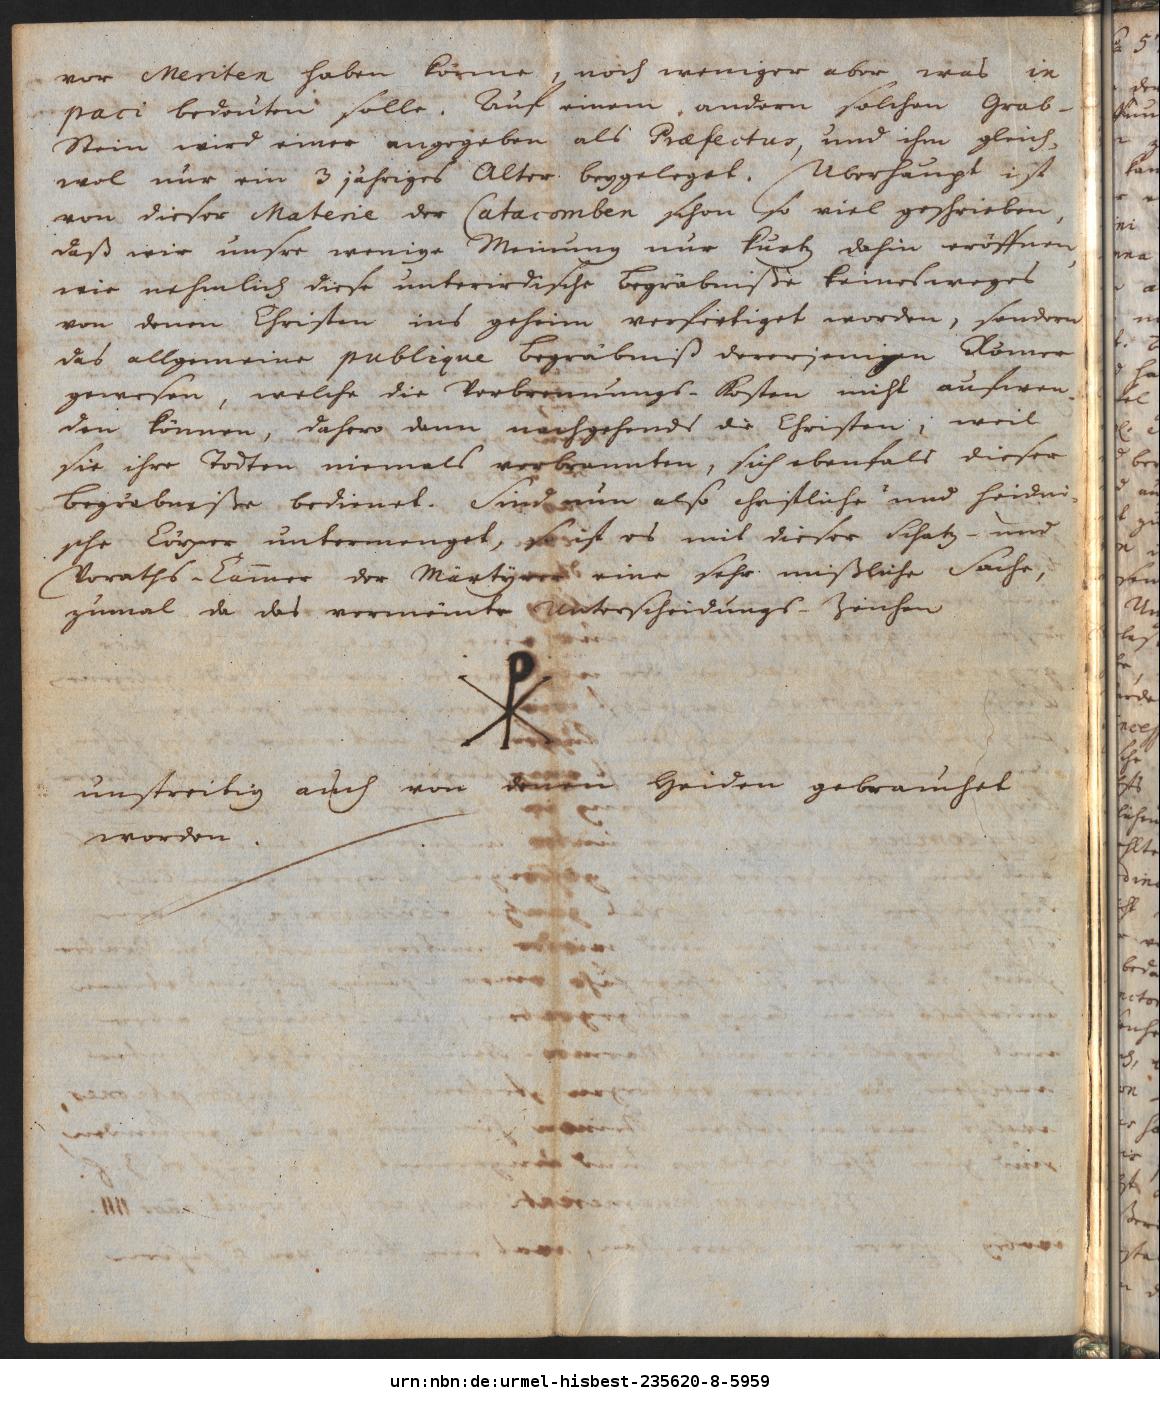 vor Meriten haben könne, noch weniger aber was in
paci bedeuten solle. Auf einem andern solchen Grab-
Stein wird einer angegeben als Præfectus, und ihm gleich-
wol nur ein 3 jähriges Alter beygeleget. Uberhaupt ist
von dieser Materie der Catacomben schon so viel geschrieben,
daß wir unsre wenige Meinung nur kurtz dahin eröffnen,
wie nehmlich diese unterirdische Begräbniße keinesweges
von denen Christen ins geheim verfertiget worden, sondern
das allgemeine publique Begräbniß dererjenigen Römer
gewesen, welche die Verbrennungs-Kosten nicht aufwen-
den können, dahero dann nachgehends die Christen, weil
sie ihre Todten niemals verbrannten, sich ebenfals dieser
Begräbniße bedienet. Sind nun also christliche und heidni-
sche Cörper untermenget, so ist es mit dieser Schatz- und
Voraths-Cam̅er der Märtÿrer eine sehr mißliche Sache,
zumal da das vermeinte Unterscheidungs-Zeichen
☧
unstreitig auch von denen Heiden gebrauchet
worden.
urn:nbn:de:urmel-hisbest-235620-8-5959